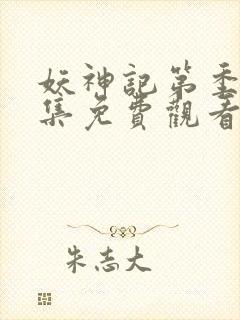 妖神記第季
集免費觀看
朱志大